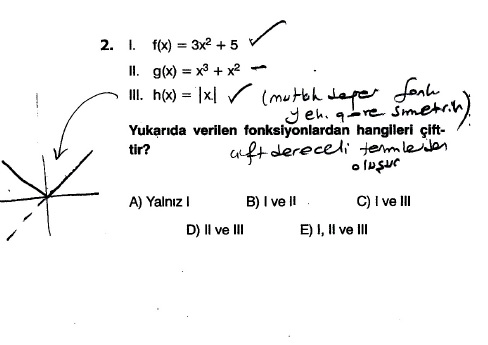 2. I. f(x) = 3x² + 5 ✓
II. g(x) = x³ + x² –
III. h(x) = |x| ✓ (mutlak değer fonk
y eh. göre simetrik)
Yukarıda verilen fonksiyonlardan hangileri çift-
tir?
çift dereceli terimlerden
oluşur
A) Yalnız I B) I ve II C) I ve III
D) II ve III E) I, II ve III